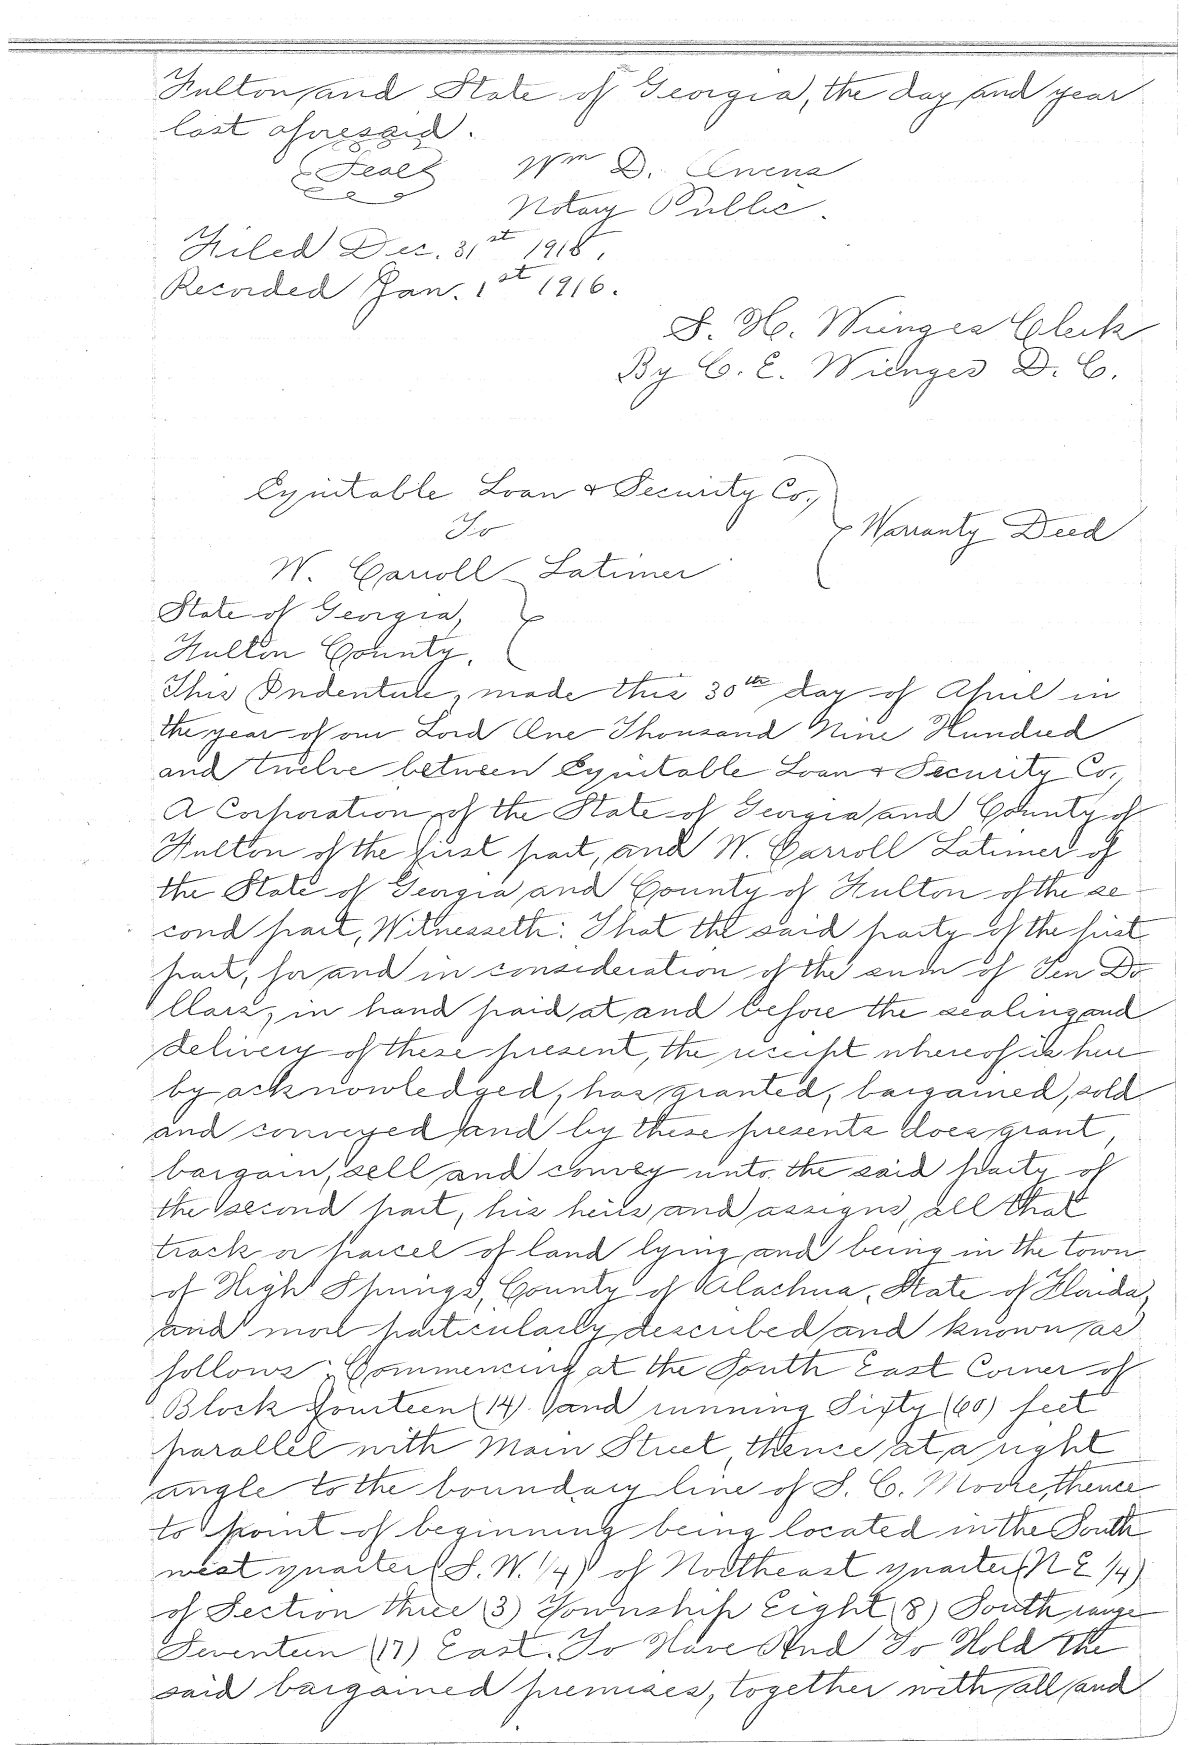 Fulton, and State of Georgia, the day and year
last aforesaid.
(Seal) Wm D. Owens
Notary Public.
Filed Dec. 31st 1915.
Recorded Jan. 1st 1916.
S. H. Wienges Clerk
By C. E. Wienges D. C.
Equitable Loan & Security Co.,
To
Warranty Deed
W. Carroll Latimer
State of Georgia,
Fulton County.
This Indenture, made this 30th day of April in
the year of our Lord One Thousand Nine Hundred
and twelve between Equitable Loan & Security Co.,
A Corporation of the State of Georgia and County of
Fulton of the first part, and W. Carroll Latimer of
the State of Georgia and County of Fulton of the se-
cond part, Witnesseth: That the said party of the first
part, for and in consideration of the sum of Ten Do-
llars, in hand paid at and before the sealing and
delivery of these present, the receipt whereof is here
by acknowledged, has granted, bargained, sold
and conveyed and by these presents does grant,
bargain, sell and convey unto the said party of
the second part, his heirs and assigns, all that
track or parcel of land lying and being in the town
of High Springs, County of Alachua, State of Florida,
and more particularly described and known as
follows: Commencing at the South East Corner of
Block fourteen (14) and running Sixty (60) feet
parallel with Main Street, thense at a right
angle to the boundary line of S. C. Moore, thence
to point of beginning being located in the South
west quarter (S. W. 1/4) of Northeast quarter (N E 1/4)
of Section three (3) Township Eight (8) South range
Seventeen (17) East. To Have And To Hold the
said bargained premises, together with all and